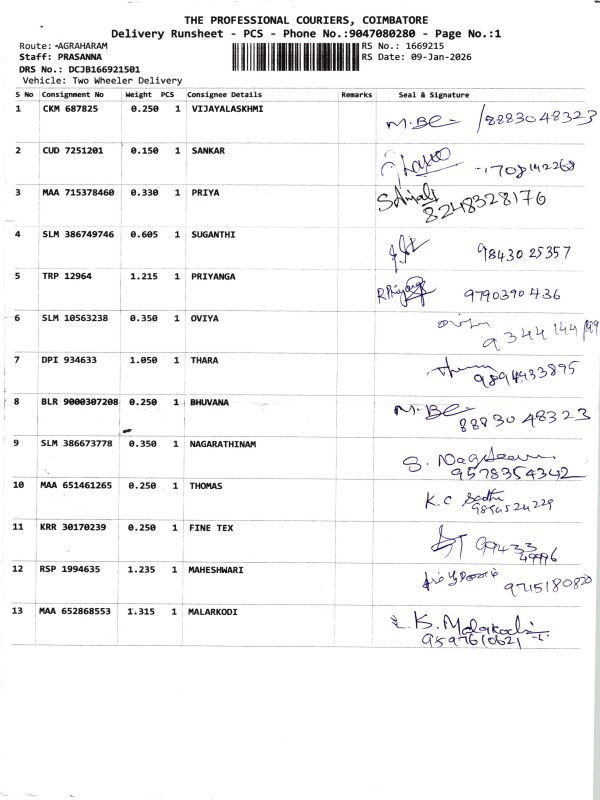 THE PROFESSIONAL COURIERS, COIMBATORE
Delivery Runsheet - PCS - Phone No.:9047080280 - Page No.:1
Route: -AGRAHARAM RS No.: 1669215
Staff: PRASANNA RS Date: 09-Jan-2026
DRS No.: DCJB166921501
Vehicle: Two Wheeler Delivery
S No Consignment No Weight PCS Consignee Details Remarks Seal & Signature
1 CKM 687825 0.250 1 VIJAYALASKHMI M.BC 8883048323
2 CUD 7251201 0.150 1 SANKAR
3 MAA 715378460 0.330 1 PRIYA 8248328176
4 SLM 386749746 0.605 1 SUGANTHI 98430 25357
5 TRP 12964 1.215 1 PRIYANGA R.Priyanga 9790390436
6 SLM 10563238 0.350 1 OVIYA
7 DPI 934633 1.050 1 THARA 9894933895
8 BLR 9000307208 0.250 1 BHUVANA M.BC 88830 48323
9 SLM 386673778 0.350 1 NAGARATHINAM 9578354342
10 MAA 651461265 0.250 1 THOMAS K.C
11 KRR 30170239 0.250 1 FINE TEX 99433
49996
12 RSP 1994635 1.235 1 MAHESHWARI 9715180820
13 MAA 652868553 1.315 1 MALARKODI K. Malarkodi
9597610621